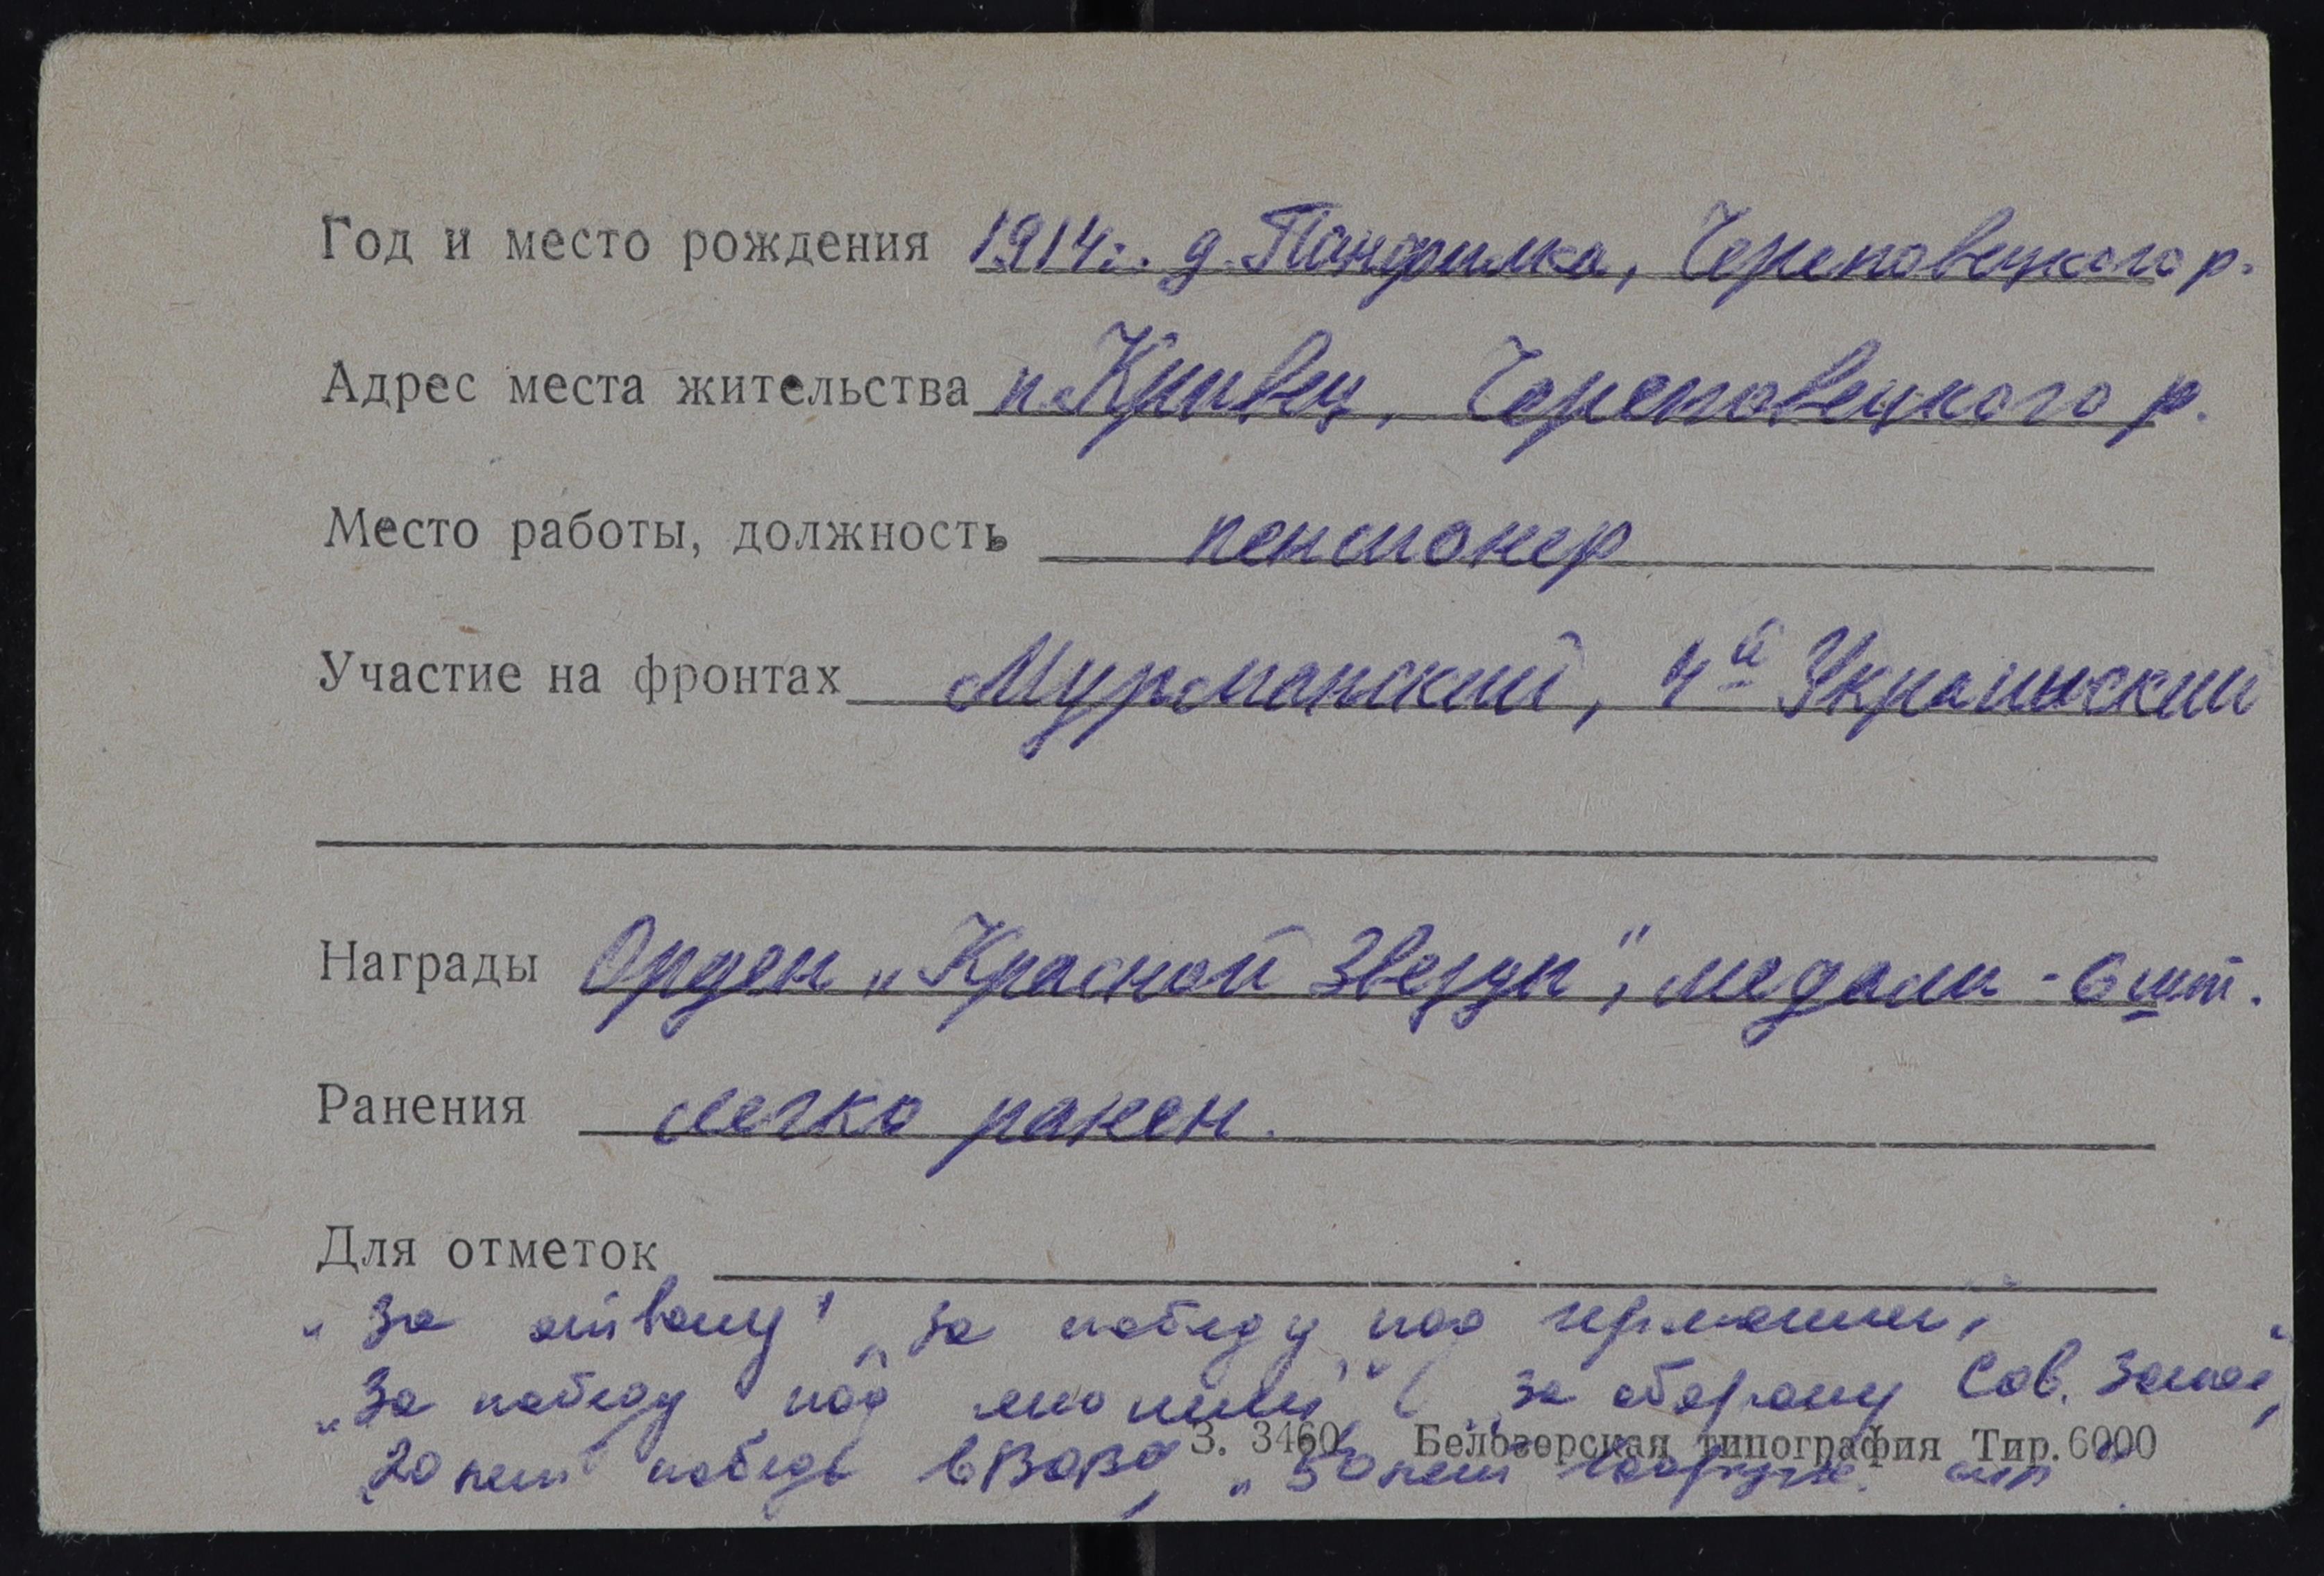 Год и место рождения 1914г. д. Панфилка, Череповецкого р.
Адрес места жительства п. Кривец, Череповецкого р.
Место работы, должность пенсионер
Участие на фронтах Мурманский, 4й Украинский
Награды Орден „Красной Звезды", медали - 6 шт.
Ранения легко ранен.
Для отметок
„За отвагу" „За победу над Германией"
„За победу над Японией" „За оборону Сов. Запол"
„20 лет победы в ВОВ" „50 лет Вооруж. сил"
З. 3460 Белозерская типография Тир. 6000